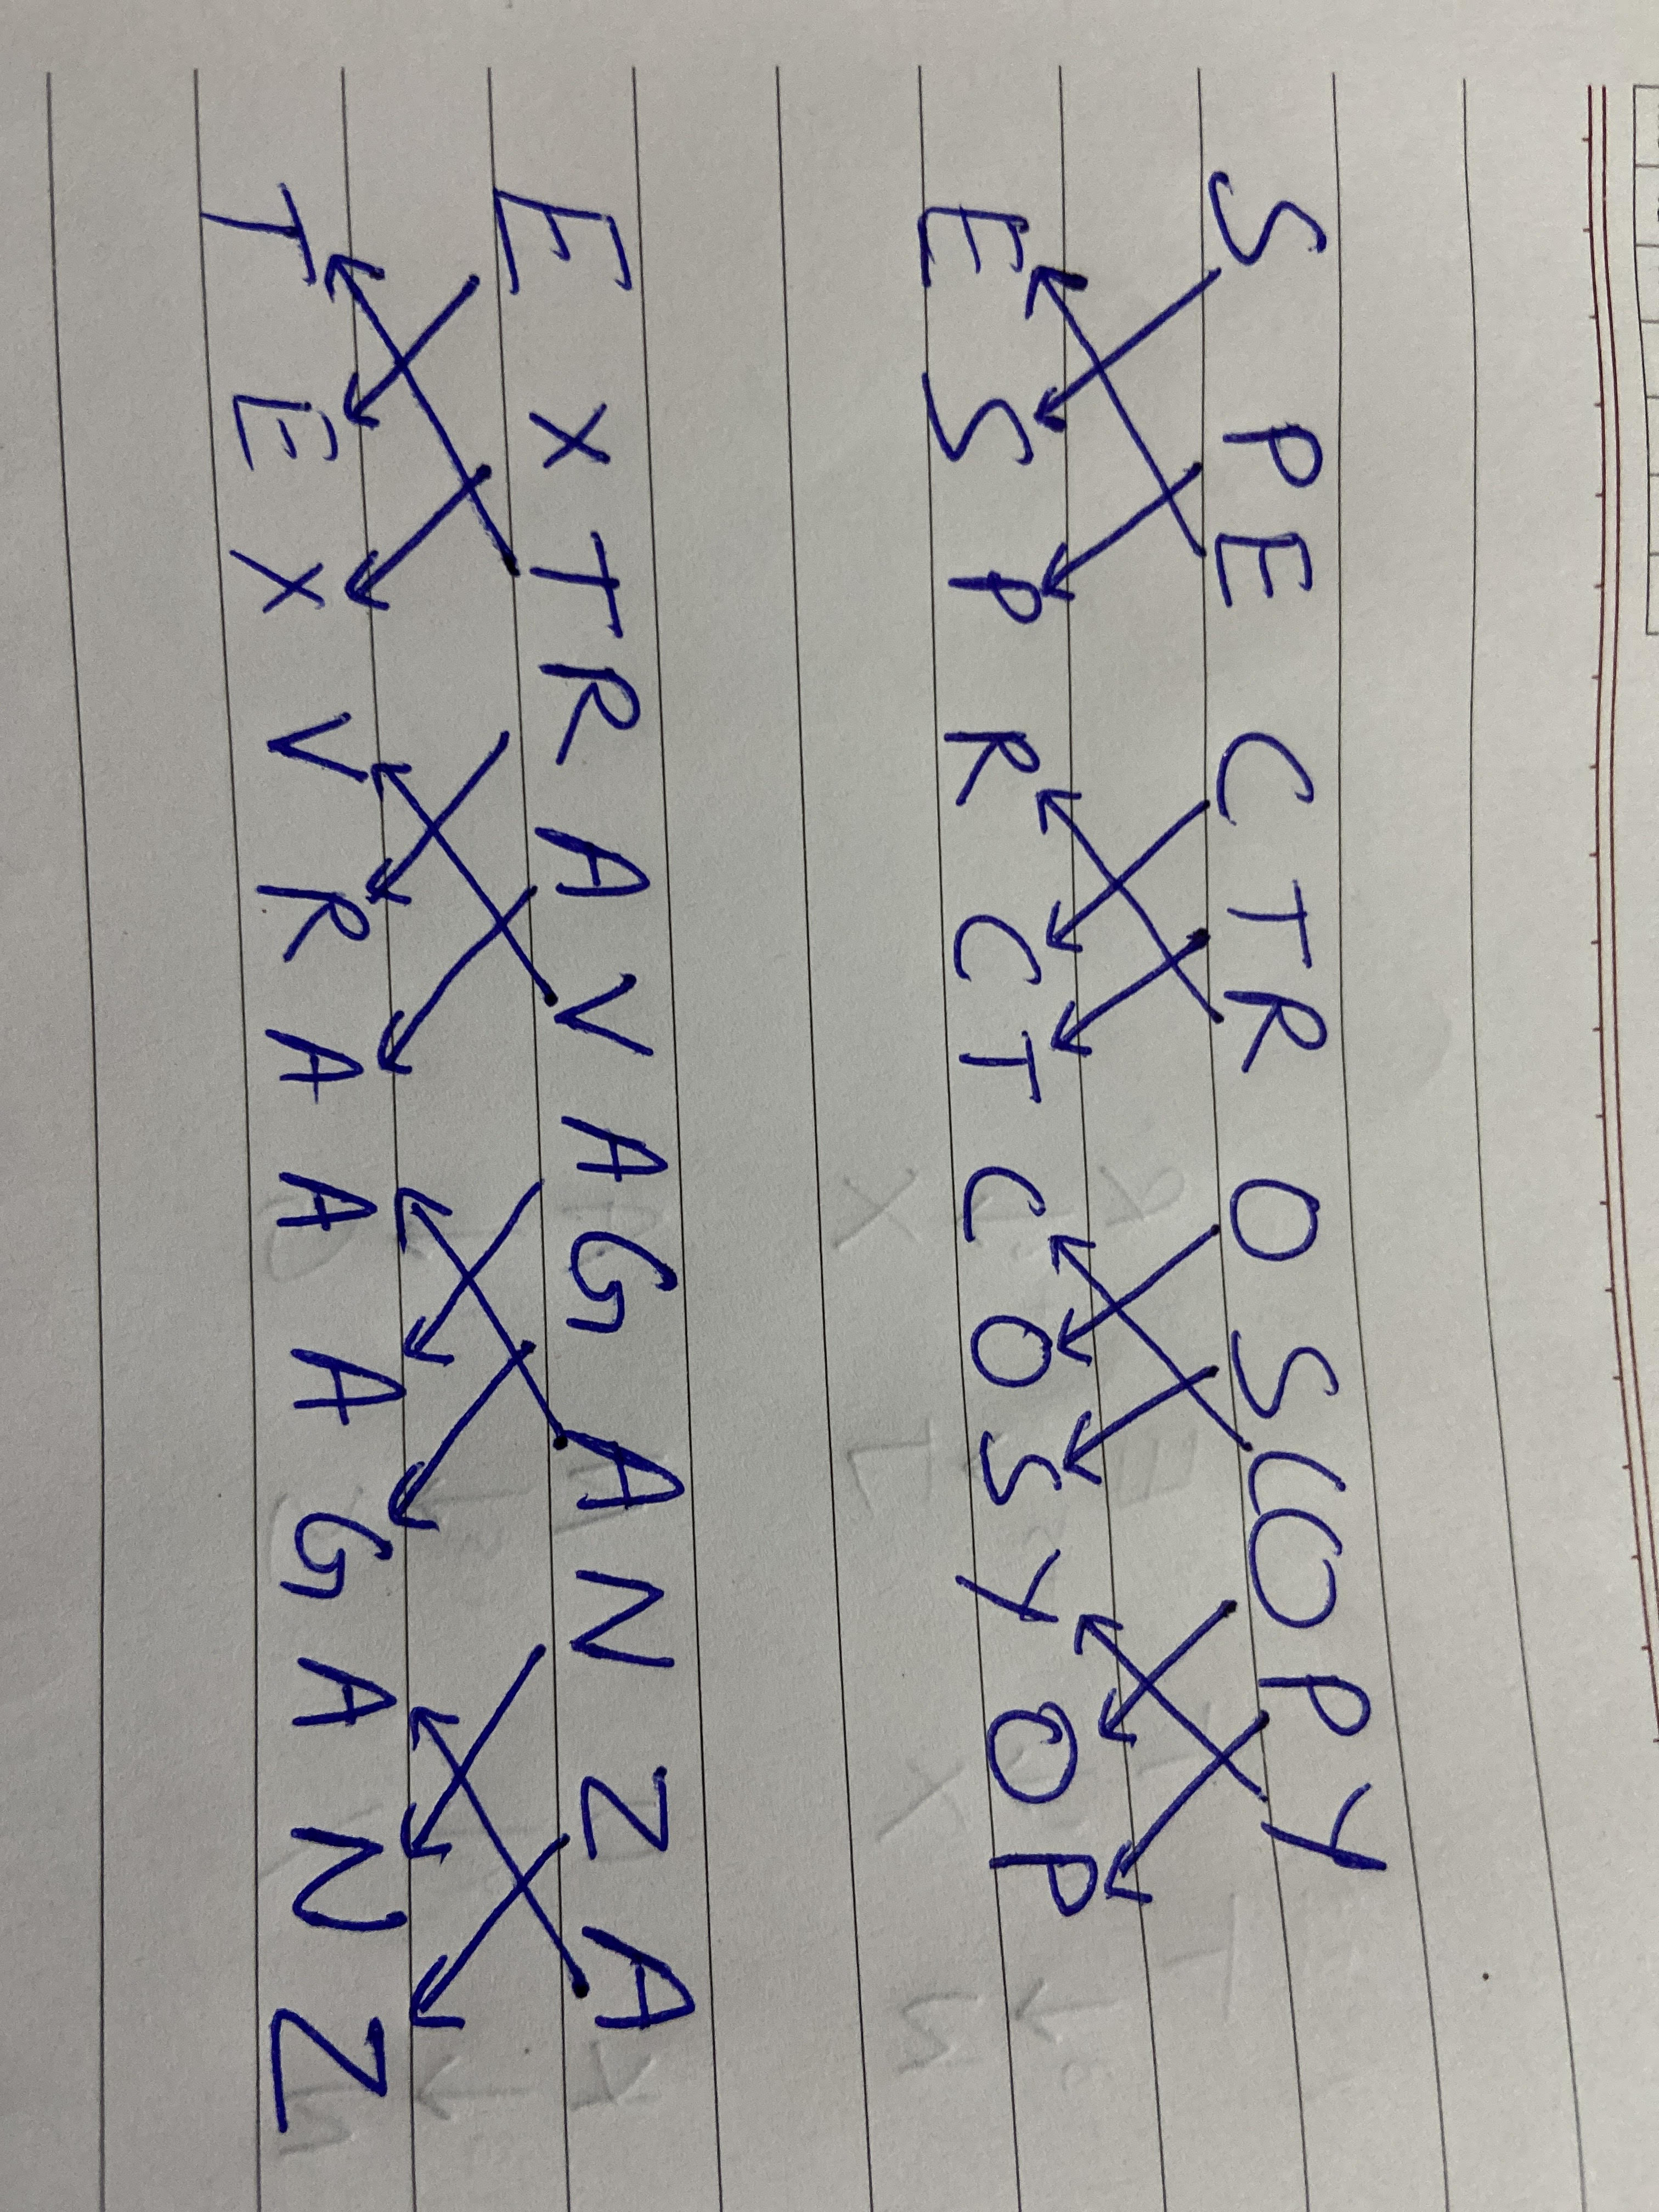 S P E C T R O S C O P Y
E S P R C T C O S Y O P
E X T R A V A G A N Z A
T E X V R A A A G A N Z